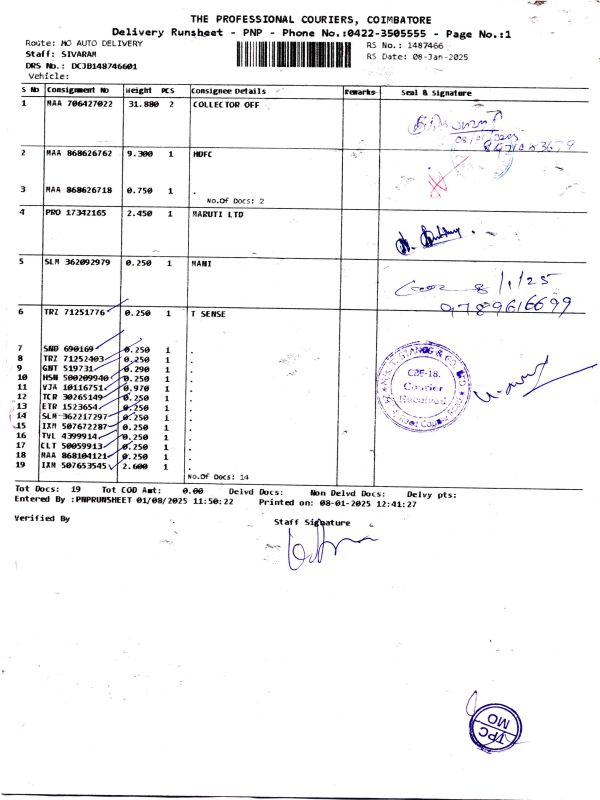 THE PROFESSIONAL COURIERS, COIMBATORE
Delivery Runsheet - PNP - Phone No.:0422-3505555 - Page No.:1
Route: MO AUTO DELIVERY
RS No.: 1487466
Staff: SIVARAM
RS Date: 08-Jan-2025
DRS No.: DCJB148746601
Vehicle:
S No Consignment No Weight PCS Consignee Details Remarks Seal & Signature
1 MAA 706427022 31.880 2 COLLECTOR OFF
2 MAA 868626762 9.300 1 HDFC
3 MAA 868626718 0.750 1 .
No.Of Docs: 2
4 PRO 17342165 2.450 1 MARUTI LTD
5 SLM 362092979 0.250 1 MANI
8/1/25
9789616699
6 TRZ 71251776 0.250 1 T SENSE
7 SND 690169 0.250 1 .
8 TRZ 71252403 0.250 1 .
9 GNT 519731 0.290 1 .
10 HSN 500209940 0.250 1 .
11 VJA 10116751 0.970 1 .
12 TCR 30265149 0.250 1 .
13 ETR 1523654 0.250 1 .
14 SLM 362217297 0.250 1 .
15 IXM 507672287 0.250 1 .
16 TVL 4399914 0.250 1 .
17 CLT 50059913 0.250 1 .
18 MAA 868104121 0.250 1 .
19 IXM 507653545 2.600 1 .
No.Of Docs: 14
CBE-18.
Courier
Received
Tot Docs: 19 Tot COD Amt: 0.00 Delvd Docs: Non Delvd Docs: Delvy pts:
Entered By :PNPRUNSHEET 01/08/2025 11:50:22 Printed on: 08-01-2025 12:41:27
Verified By
Staff Signature
TPC
MO